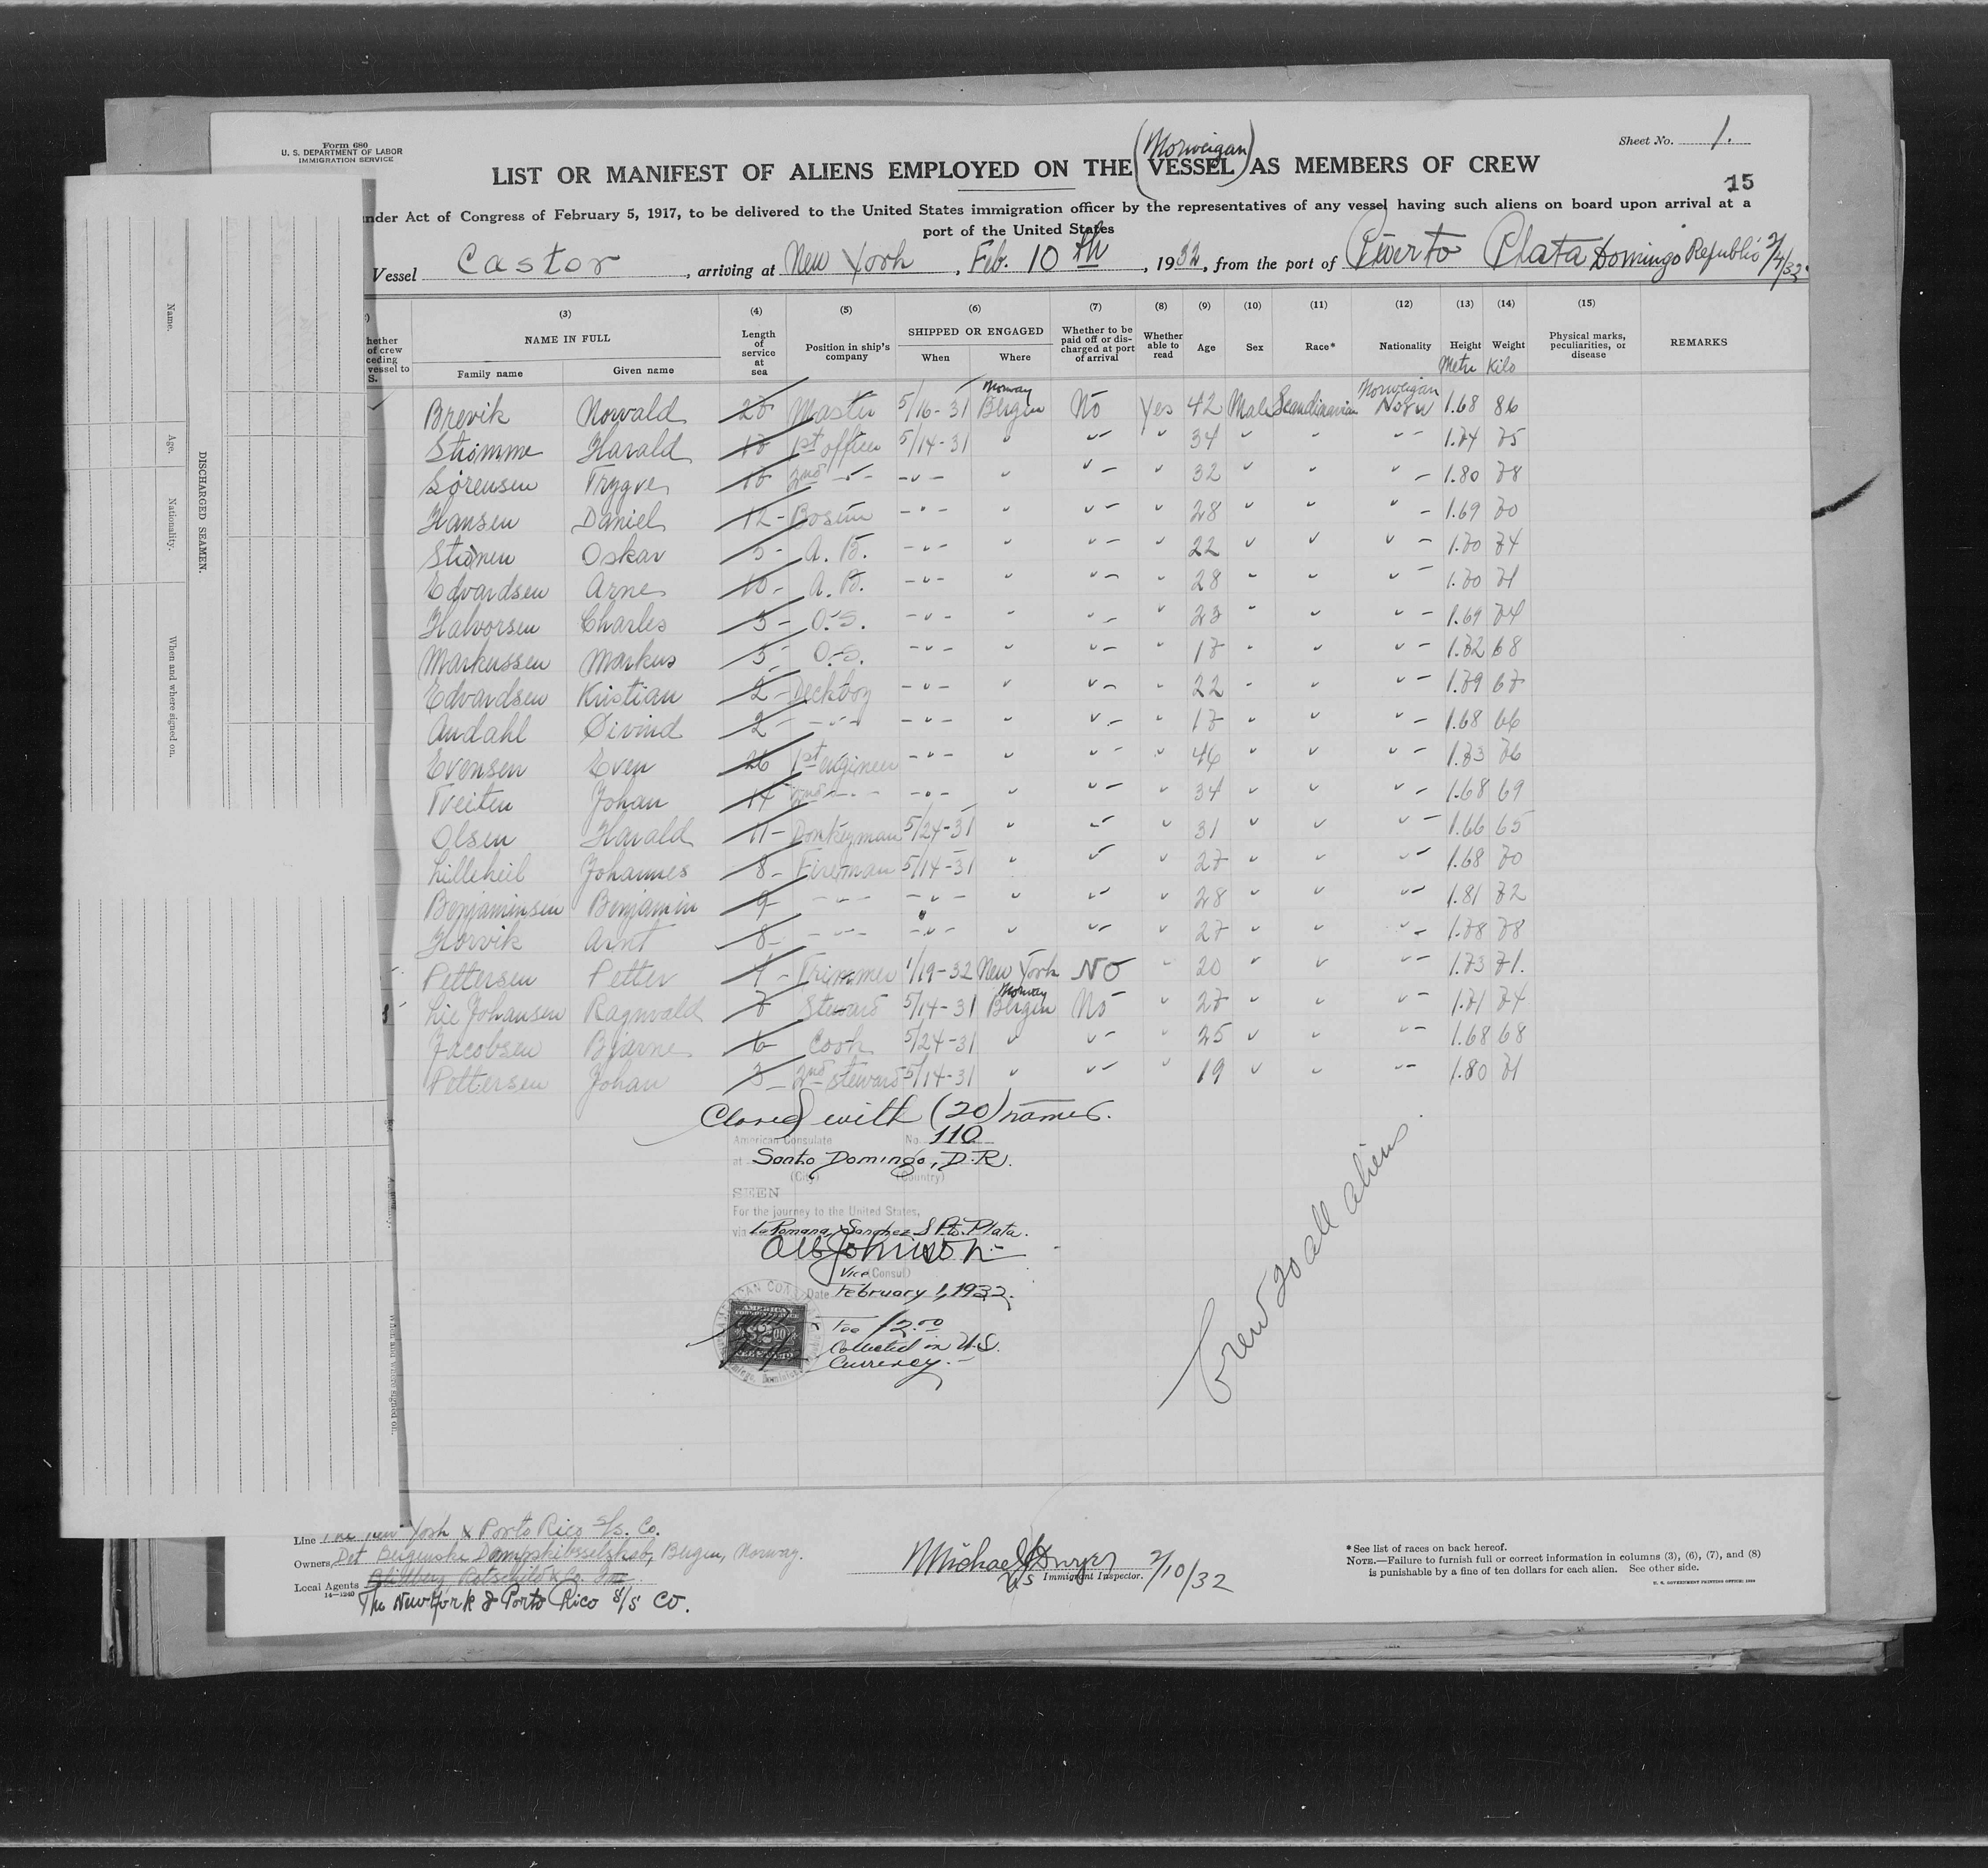 Form 680
U. S. DEPARTMENT OF LABOR
IMMIGRATION SERVICE
Sheet No. 1.
(Norweigan)
LIST OR MANIFEST OF ALIENS EMPLOYED ON THE VESSEL AS MEMBERS OF CREW
15
nder Act of Congress of February 5, 1917, to be delivered to the United States immigration officer by the representatives of any vessel having such aliens on board upon arrival at a
port of the United States
Vessel Castor, arriving at New York, Feb. 10th, 1932, from the port of Puerto Plata Domingo Republic 2/4/32
(3) (4) (5) (6) (7) (8) (9) (10) (11) (12) (13) (14) (15)
hether of crew ceding vessel to S. NAME IN FULL Family name Given name Length of service at sea Position in ship's company SHIPPED OR ENGAGED When Where Whether to be paid off or discharged at port of arrival Whether able to read Age Sex Race* Nationality Height Metre Weight Kilo Physical marks, peculiarities, or disease REMARKS
Brevik Norvald 28 Master 5/16-31 Norway Bergen No Yes 42 Male Scandinavian Norweigan 1.68 86
Strømme Harald 18 1st officer 5/14-31 " " - " 34 " " " - 1.74 75
Sørensen Trygve 16 2nd - " - - " - " " - " 32 " " " - 1.80 78
Hansen Daniel 12 - Bosun - " - " " - " 28 " " " - 1.69 70
Oskar 5 - A. B. - " - " " - " 22 " " " - 1.70 74
Edvardsen Arne 10 - A. B. - " - " " - " 28 " " " - 1.70 71
Halvorsen Charles 5 - O.S. - " - " " - " 23 " " " - 1.69 74
Markussen Markus 3 - O.S. - " - " " - " 17 " " " - 1.72 68
Edvardsen Kristian 2 - Deckboy - " - " " - " 22 " " " - 1.79 67
Audahl Øivind 2 - - " - - " - " " - " 17 " " " - 1.68 66
Evensen Even 26 1st engineer - " - " " - " 46 " " " - 1.73 76
Tveiten Johan 14 2nd - " - - " - " " - " 34 " " " - 1.68 69
Olsen Harald 11 - Donkeyman 5/24-31 " " - " 31 " " " - 1.66 65
Lilleheil Johannes 8 - Fireman 5/14-31 " " - " 27 " " " - 1.68 70
Benjaminsen Benjamin 9 - " - - " - " " - " 28 " " " - 1.81 72
Horvik Arnt 8 - - " - - " - " " - " 27 " " " - 1.78 78
Pettersen Petter 1 - Trimmer 1/19-32 New York No " 20 " " " - 1.73 71.
Lie Johansen Ragnvald 7 Steward 5/14-31 Norway Bergen No " 27 " " " - 1.71 74
Jacobsen Bjarne 6 Cook 5/24-31 " " - " 25 " " " - 1.68 68
Pettersen Johan 3 - 2nd steward 5/14-31 " " - " 19 " " " - 1.80 71
Closed with (20) names.
American Consulate No. 110
at Santo Domingo, D.R.
(City) (Country)
SEEN
For the journey to the United States,
via La Romana, Sanchez & Pto. Plata.
Johnson
Vice (Consul)
Date February 1, 1932.
Fee $2.00
Collected in U.S.
Currency.-
AMERICAN
$2 00
Crew 20 all aliens.
Name.
Age.
Nationality.
When and where signed on.
DISCHARGED SEAMEN.
When and where signed on.
Line The New York & Porto Rico S/S. Co.
Owners Det Bergenske Dampskibsselskab, Bergen, Norway.
Local Agents
14-1240
The New York & Porto Rico S/S Co.
Michael J Dwyer 2/10/32
US Immigrant Inspector.
*See list of races on back hereof.
NOTE.—Failure to furnish full or correct information in columns (3), (6), (7), and (8)
is punishable by a fine of ten dollars for each alien. See other side.